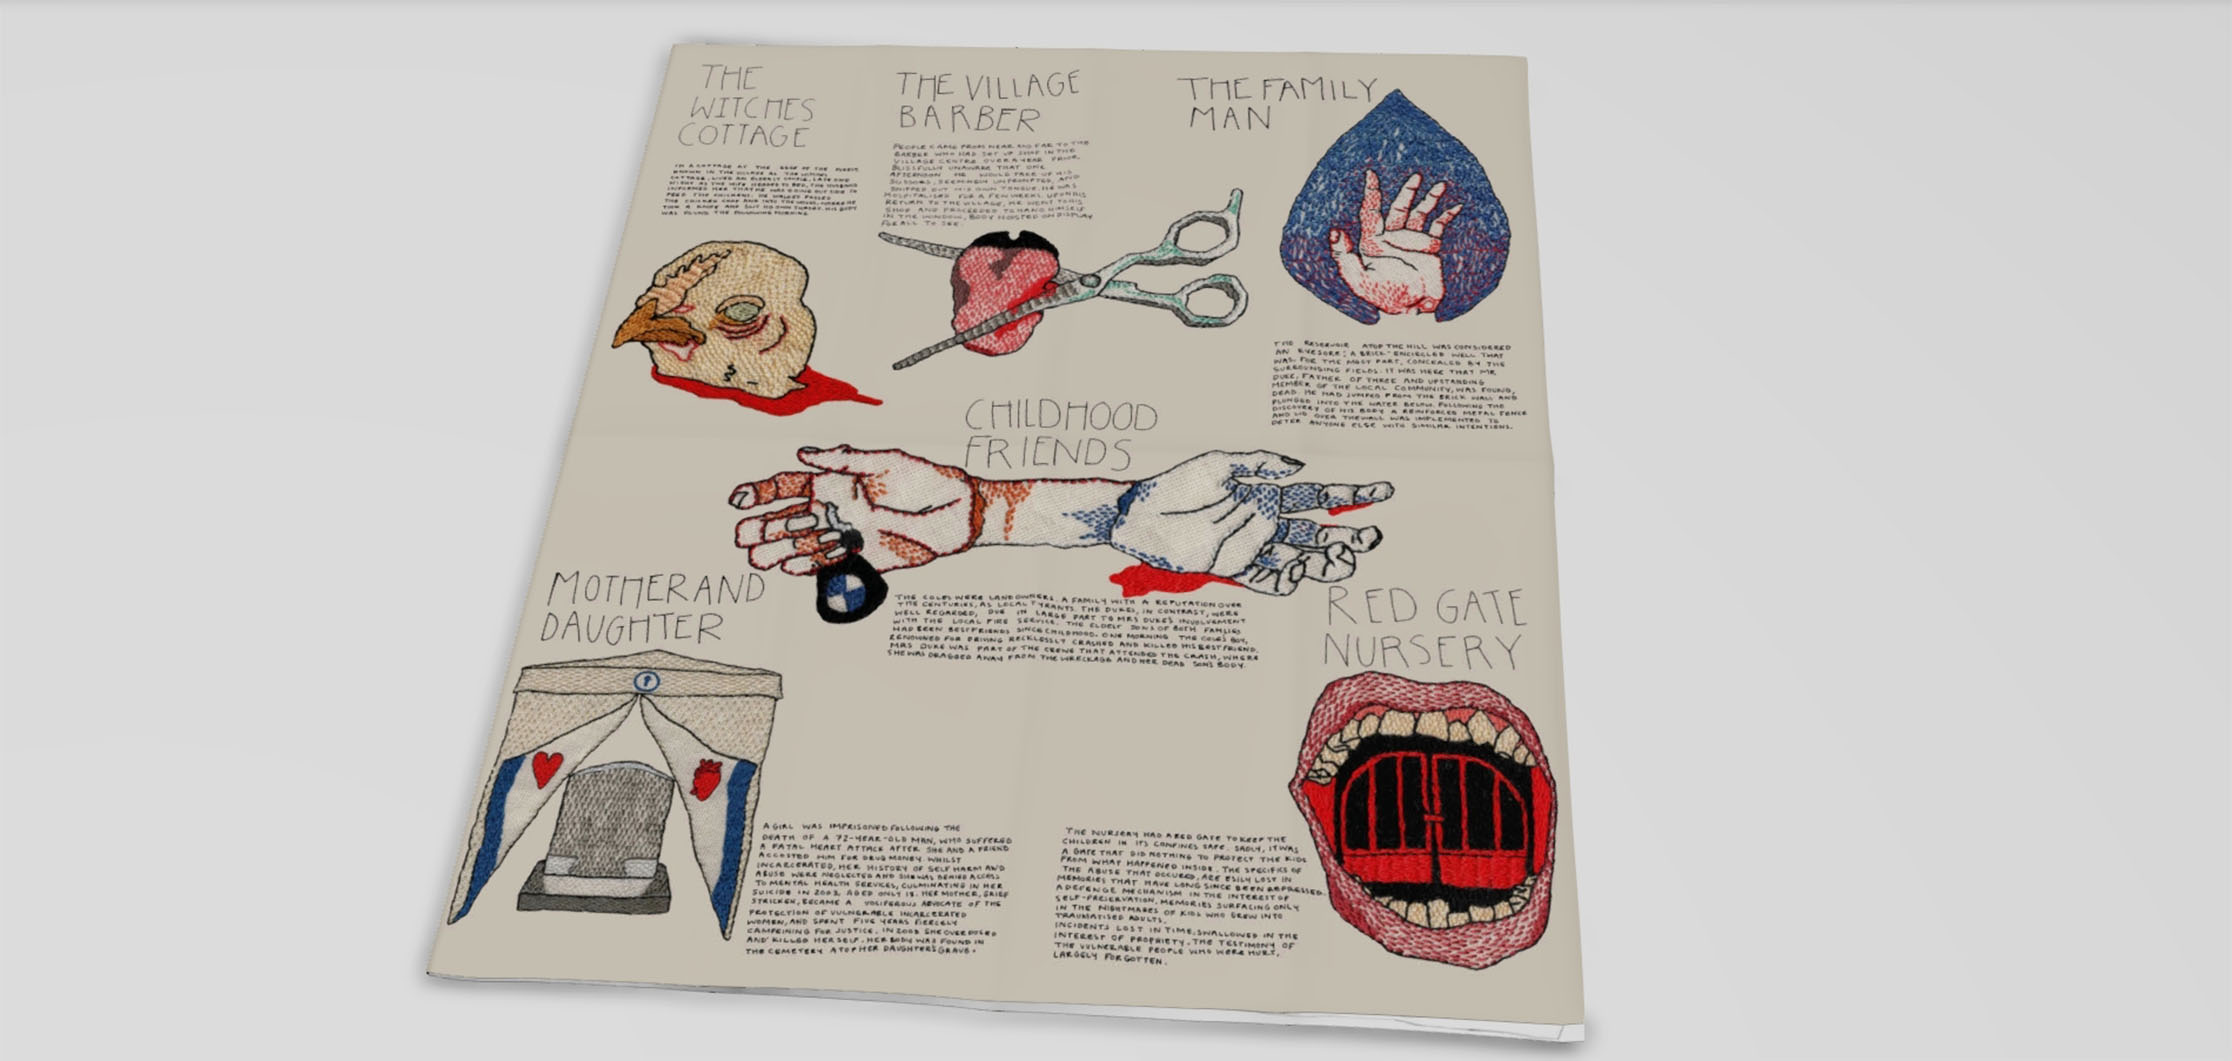 THE
WITCHES
COTTAGE
IN A COTTAGE AT THE EDGE OF THE
KNOWN IN THE VILLAGE AS THE WITCHES
COTTAGE, LIVED AN ELDERLY COUPLE. LATE ONE
NIGHT AS THE WIFE HEADED TO BED, THE HUSBAND
INFORMED HER THAT HE WAS GOING OUTSIDE TO
FEED THE CHICKENS. HE WALKED PASSED
THE CHICKEN COOP AND INTO THE WOODS, WHERE HE
TOOK A KNIFE AND SLIT HIS OWN THROAT. HIS BODY
WAS FOUND THE FOLLOWING MORNING.
THE VILLAGE
BARBER
PEOPLE CAME FROM NEAR AND FAR TO THE
BARBER WHO HAD SET UP SHOP IN THE
VILLAGE CENTRE OVER A YEAR PRIOR.
BLISSFULLY UNAWARE THAT ONE
AFTERNOON HE WOULD TAKE UP HIS
SCISSORS, SEEMINGLY UNPROMPTED, AND
SNIPPED OUT HIS OWN TONGUE. HE WAS
HOSPITALISED FOR A FEW WEEKS. UPON HIS
RETURN TO THE VILLAGE, HE WENT TO HIS
SHOP AND PROCEEDED TO HANG HIMSELF
IN THE WINDOW, BODY HOISTED ON DISPLAY
FOR ALL TO SEE.
THE FAMILY
MAN
THE RESERVOIR ATOP THE HILL WAS CONSIDERED
AN EYESORE; A BRICK-ENCIRCLED WELL THAT
WAS, FOR THE MOST PART, CONCEALED BY THE
SURROUNDING FIELDS. IT WAS HERE THAT MR
DUKE, FATHER OF THREE AND UPSTANDING
MEMBER OF THE LOCAL COMMUNITY, WAS FOUND,
DEAD. HE HAD JUMPED FROM THE BRICK WALL AND
PLUNGED INTO THE WATER BELOW. FOLLOWING THE
DISCOVERY OF HIS BODY A REINFORCED METAL FENCE
AND LID OVER THE WALL WAS IMPLEMENTED TO
DETER ANYONE ELSE WITH SIMILAR INTENTIONS.
CHILDHOOD
FRIENDS
THE COLES WERE LANDOWNERS. A FAMILY WITH A REPUTATION OVER
THE CENTURIES, AS LOCAL TYRANTS. THE DUKES, IN CONTRAST, WERE
WELL REGARDED, DUE IN LARGE PART TO MRS DUKE'S INVOLVEMENT
WITH THE LOCAL FIRE SERVICE. THE ELDEST SONS OF BOTH FAMILIES
HAD BEEN BESTFRIENDS SINCE CHILDHOOD. ONE MORNING THE COLE'S BOY,
RENOWNED FOR DRIVING RECKLESSLY CRASHED AND KILLED HIS BESTFRIEND.
MRS DUKE WAS PART OF THE CREWE THAT ATTENDED THE CRASH, WHERE
SHE WAS DRAGGED AWAY FROM THE WRECKAGE AND HER DEAD SONS BODY.
MOTHER AND
DAUGHTER
A GIRL WAS IMPRISONED FOLLOWING THE
DEATH OF A 72-YEAR-OLD MAN, WHO SUFFERED
A FATAL HEART ATTACK AFTER SHE AND A FRIEND
ACCOSTED HIM FOR DRUG MONEY. WHILST
INCARCERATED, HER HISTORY OF SELF HARM AND
ABUSE WERE NEGLECTED AND SHE WAS DENIED ACCESS
TO MENTAL HEALTH SERVICES, CULMINATING IN HER
SUICIDE IN 2003. AGED ONLY 18. HER MOTHER, GRIEF
STRICKEN, BECAME A VOCIFEROUS ADVOCATE OF THE
PROTECTION OF VULNERABLE INCARCERATED
WOMEN, AND SPENT FIVE YEARS FIERCELY
CAMPEINING FOR JUSTICE. IN 2008 SHE OVERDOSED
AND KILLED HERSELF. HER BODY WAS FOUND IN
THE CEMETERY ATOP HER DAUGHTER'S GRAVE.
RED GATE
NURSERY
THE NURSERY HAD A RED GATE TO KEEP THE
CHILDREN IN ITS CONFINES SAFE. SADLY, IT WAS
A GATE THAT DID NOTHING TO PROTECT THE KIDS
FROM WHAT HAPPENED INSIDE. THE SPECIFICS OF
THE ABUSE THAT OCCURED, ARE ESILY LOST IN
MEMORIES THAT HAVE LONG SINCE BEEN REPRESSED.
A DEFENCE MECHANISM IN THE INTEREST OF
SELF-PRESERVATION, MEMORIES SURFACING ONLY
IN THE NIGHTMARES OF KIDS WHO GREW INTO
TRAUMATISED ADULTS.
INCIDENTS LOST IN TIME, SWALLOWED IN THE
INTEREST OF PROPRIETY. THE TESTIMONY OF
THE VULNERABLE PEOPLE WHO WERE HURT,
LARGELY FORGOTTEN.